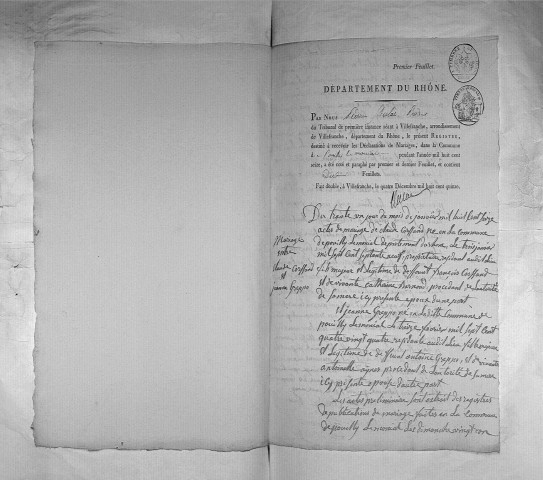 Premier Feuillet.
DÉPARTEMENT DU RHÔNE.
PAR NOUS
du Tribunal de première instance séant à Villefranche, arrondissement
de Villefranche, département du Rhône, le présent REGISTRE,
destiné à recevoir les Déclarations de Mariages, dans la Commune
d pendant l'année mil huit cent
seize, a été coté et paraphé par premier et dernier Feuillet, et contient
Feuillets.
Fait double, à Villefranche, le quatre Décembre mil huit cent quinze.
Mariage
entre
Claude
et
jeanne Greppo
Du trente un jour du mois de janvier mil huit Cent Seize
acte de mariage de claude né en la commune
de pouilly Le monial departement du rhone Le trois janvier
mil Sept Cent Septante neuf, propriétaire residant audit Lieu
fils majeur et Legitime de deffunt francois
et de vivante catherine procedant de Lautorité
de Sa mere icy presente epoux d'une part
et jeanne Greppo née en Laditte Commune de
pouilly Le monial Le treize fevrier mil Sept Cent
quatre vingt quatre residante audit Lieu fille majeure
et Legitime de deffunt antoine Greppo, et de vivante
antoinette procedant de Lautorité de Sa mere
icy presente epouse d'autre part
Les actes preliminaire Sont extrait des registres
de publications de mariage faites en La Commune
de pouilly Le monial Les dimanche vingt